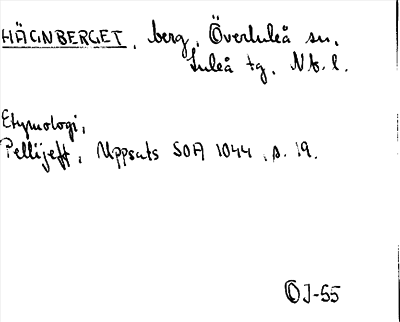 HÄGNBERGET, berg, Överluleå sn,
Luleå tg, Nb. l.
Etymologi,
Pellijeff, Uppsats SOA 1044, s. 19.
ÖJ-55